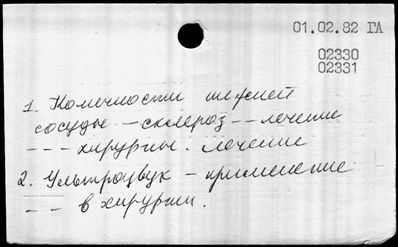 01.02.82 ГА
02330
02331
1. Конечности нижней
сосуды - склероз - - лечение
- - - хирургич. лечение
2. Ультразвук - применение
- - в хирургии.